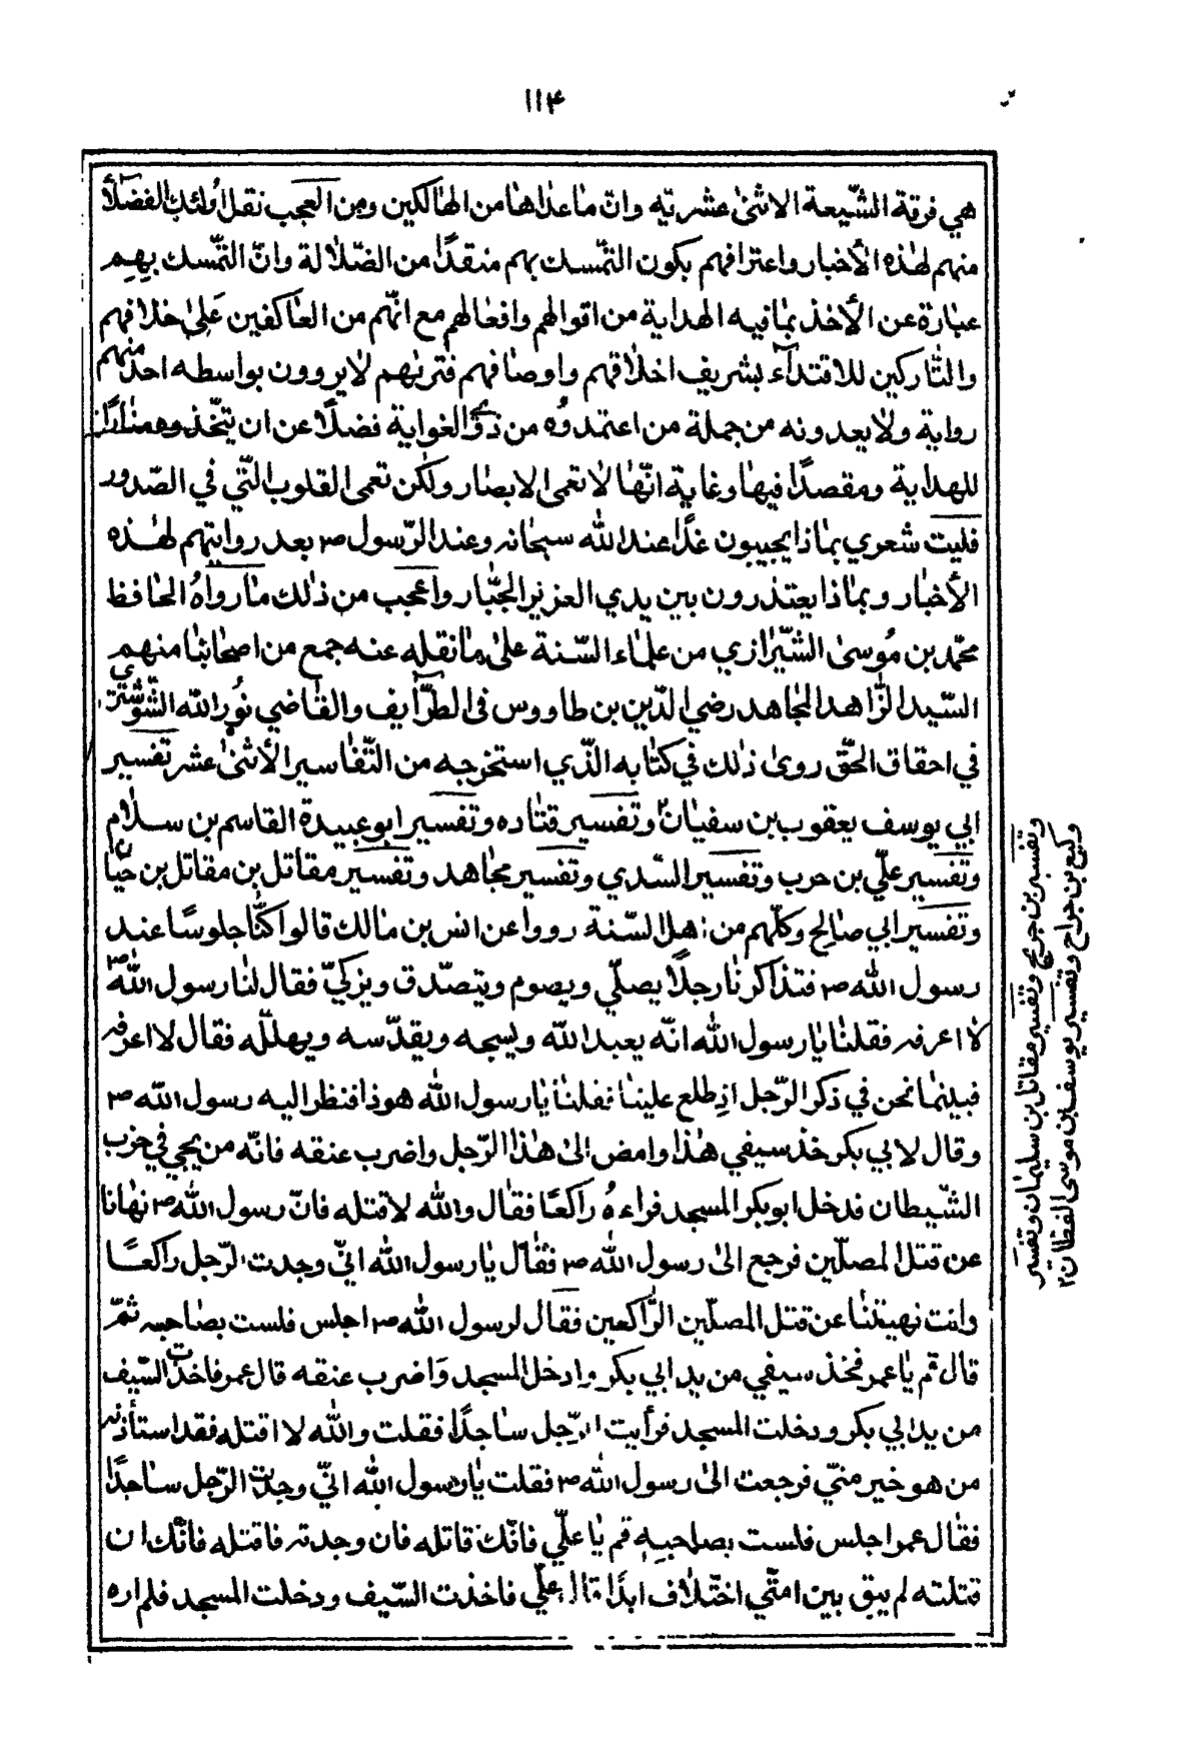 ١١۴
هي فرقة الشّيعة الاثنىٰ عشريّه وانّ مٰا عدٰاهٰا من الهٰالكين ومن العجب نقل اُولئك الفضلاٰء
منهم لهٰذه الأخبار واعترافهم بكون التمّسك بهم منقذًا من الضّلالة وانّ التمّسك بِهِم
عبٰارة عن الأخذ بمٰا فيه الهدٰاية من اقوٰالهم وافعٰالهم مع انّهم من العٰاكفين عَلىٰ خلافهم
والتّٰاركين للاقتدآء بشريف اخلاقهم واوصٰافهم فترٰيهم لاٰ يروون بواسطه احد منهم
رواية ولاٰ يعدونه من جملة من اعتمدوُه من ذوي الغواية فضلاً عن ان يتّخذوهم منٰارًا
للهداية ومقصدًا فيهٰا وغاية انّهٰا لاٰ تعمى الابصٰار ولٰكن تعمى القلوب الّتي في الصّدور
فليت شعري بمٰاذا يجيبون غدًا عند اللّٰه سبحٰانه وعند الرّسول ص بعد روايتهم لهٰذه
الأخبٰار وبمٰاذا يعتذرون بين يدي العزيز الجبّٰار واعجب من ذٰلك مٰا روٰاهُ الحٰافظ
محّمد بن مُوسىٰ الشّيرٰازي من علمٰاء السّنة علىٰ مٰا نقله عنه جمع من اصحٰابنٰا منهم
السّيد الزّٰاهد المجٰاهد رضي الدّين بن طٰاووس في الطرٰآيف والقٰاضي نُور اللّٰه الشّوشتري
في احقاق الحّق روىٰ ذٰلك في كتٰابه الّذي استخرجه من التّفٰاسير الأثنىٰ عشر تفسير
ابي يوسف يعقوب بن سفيٰان٢ وتفسير قتٰاده وتفسير ابو عبيدة القاسم بن سلاٰم
وتفسير عليّ بن حرب وتفسير السّدي وتفسير مجٰاهد وتفسير مقاتل بن مقاتل بن حيّٰان
وتفسير ابي صٰالح وكلّهم من اهل السّنة رووا عن انس بن مٰالك قالوا كنّٰا جلوسًا عند
رسول اللّٰه ص فتذاكرنٰا رجلاً يصلّي ويصوم ويتصّدق ويزكيّ فقال لنٰا رسول اللّٰه ص
لاٰ اعرفه فقلنٰا يٰا رسول اللّٰه انّه يعبد اللّٰه ويسبحه ويقدّسه ويهلّله فقال لا اعرفه
فبينمٰا نحن في ذكر الرّجل اذ طلع علينٰا فقلنٰا يٰا رسول اللّٰه هوذا فنظر اليه رسول اللّٰه ص
وقال لابي بكر خذ سيفي هٰذا وامض الىٰ هٰذا الرّجل واضرب عنقه فانّه من يجي في حزب
الشّيطان فدخل ابو بكر المسجد فراءهُ راكعًا فقٰال واللّٰه لا قتله فانّ رسول اللّٰه ص نهٰانا
عن قتل المصلّين فرجع الىٰ رسول اللّٰه ص فقٰال يٰا رسول اللّٰه انيّ وجدت الرّجل راكعًا
وانت نهيتنٰا عن قتل المصلّين الرّٰاكعين فقال لرسول اللّٰه ص اجلس فلست بصٰاحبه ثمّ
قال قم يٰا عمر فخذ سيفي من يد ابي بكر وادخل المسجد وَاضرب عنقه قال عمر فاخذت السّيف
من يد ابي بكر ودخلت المسجد فرأيت الرّجل سٰاجدًا فقلت واللّٰه لا اقتله فقد استأذنه
من هو خير منيّ فرجعت الىٰ رسول اللّٰه ص فقلت يٰا رسول اللّٰه انيّ وجدت الرّجل سٰاجدًا
فقٰال عمر اجلس فلست بصٰاحبه قم يٰا عليّ فانّك قٰاتله فان وجدته فاقتله فانّك ان
قتلته لم يبق بين امتّي اختّلاٰف ابدًا قال عليّ فاخذت السّيف ودخلت المسجد فلم اره
وتفسير بن جريح وتفسير مقاتل بن سليمٰان وتفسير
وكيع بن جراح وتفسير يوسف بن موسى القطان ٢